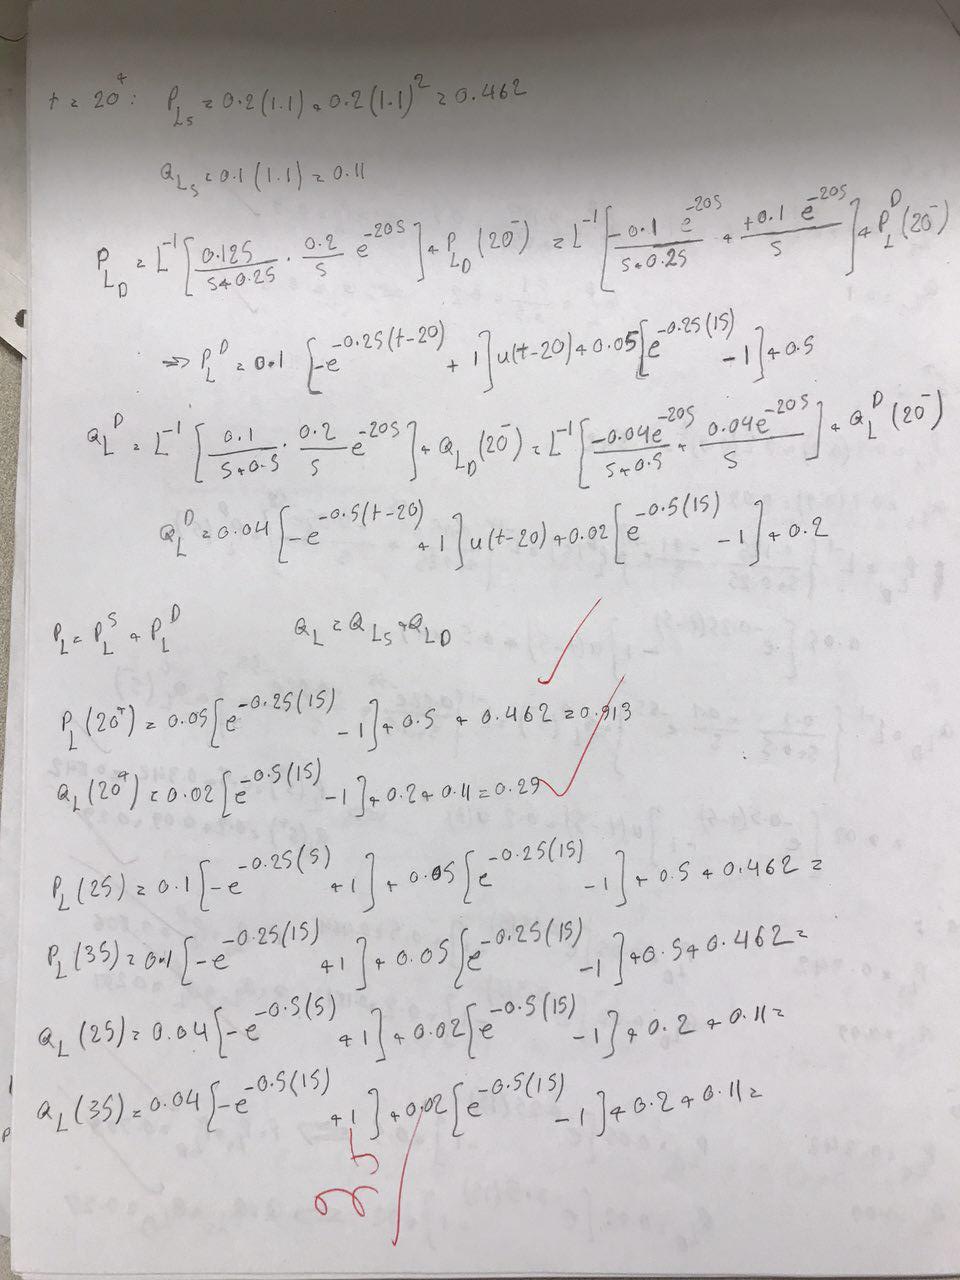 t = 20⁺ : P_Ls = 0.2(1.1) + 0.2(1.1)² = 0.462
Q_Ls = 0.1(1.1) = 0.11
P_LD = L⁻¹[0.125/(s+0.25) · 0.2/s e^(-20s)] + P_LD(20⁻) = L⁻¹[-0.1 e^(-20s)/(s+0.25) + +0.1 e^(-20s)/s] + P_L^D(20⁻)
⇒ P_L^D = 0.1[-e^(-0.25(t-20)) + 1]u(t-20) + 0.05[e^(-0.25(15)) - 1] + 0.5
Q_L^D = L⁻¹[0.1/(s+0.5) · 0.2/s e^(-20s)] + Q_LD(20⁻) = L⁻¹[-0.04e^(-20s)/(s+0.5) + 0.04e^(-20s)/s] + Q_L^D(20⁻)
Q_L^D = 0.04[-e^(-0.5(t-20)) + 1]u(t-20) + 0.02[e^(-0.5(15)) - 1] + 0.2
P_L = P_L^S + P_L^D Q_L = Q_Ls + Q_LD
P_L(20⁺) = 0.05[e^(-0.25(15)) - 1] + 0.5 + 0.462 = 0.913
Q_L(20⁺) = 0.02[e^(-0.5(15)) - 1] + 0.2 + 0.11 = 0.29
P_L(25) = 0.1[-e^(-0.25(5)) + 1] + 0.05[e^(-0.25(15)) - 1] + 0.5 + 0.462 =
P_L(35) = 0.1[-e^(-0.25(15)) + 1] + 0.05[e^(-0.25(15)) - 1] + 0.5 + 0.462 =
Q_L(25) = 0.04[-e^(-0.5(5)) + 1] + 0.02[e^(-0.5(15)) - 1] + 0.2 + 0.11 =
Q_L(35) = 0.04[-e^(-0.5(15)) + 1] + 0.02[e^(-0.5(15)) - 1] + 0.2 + 0.11 =